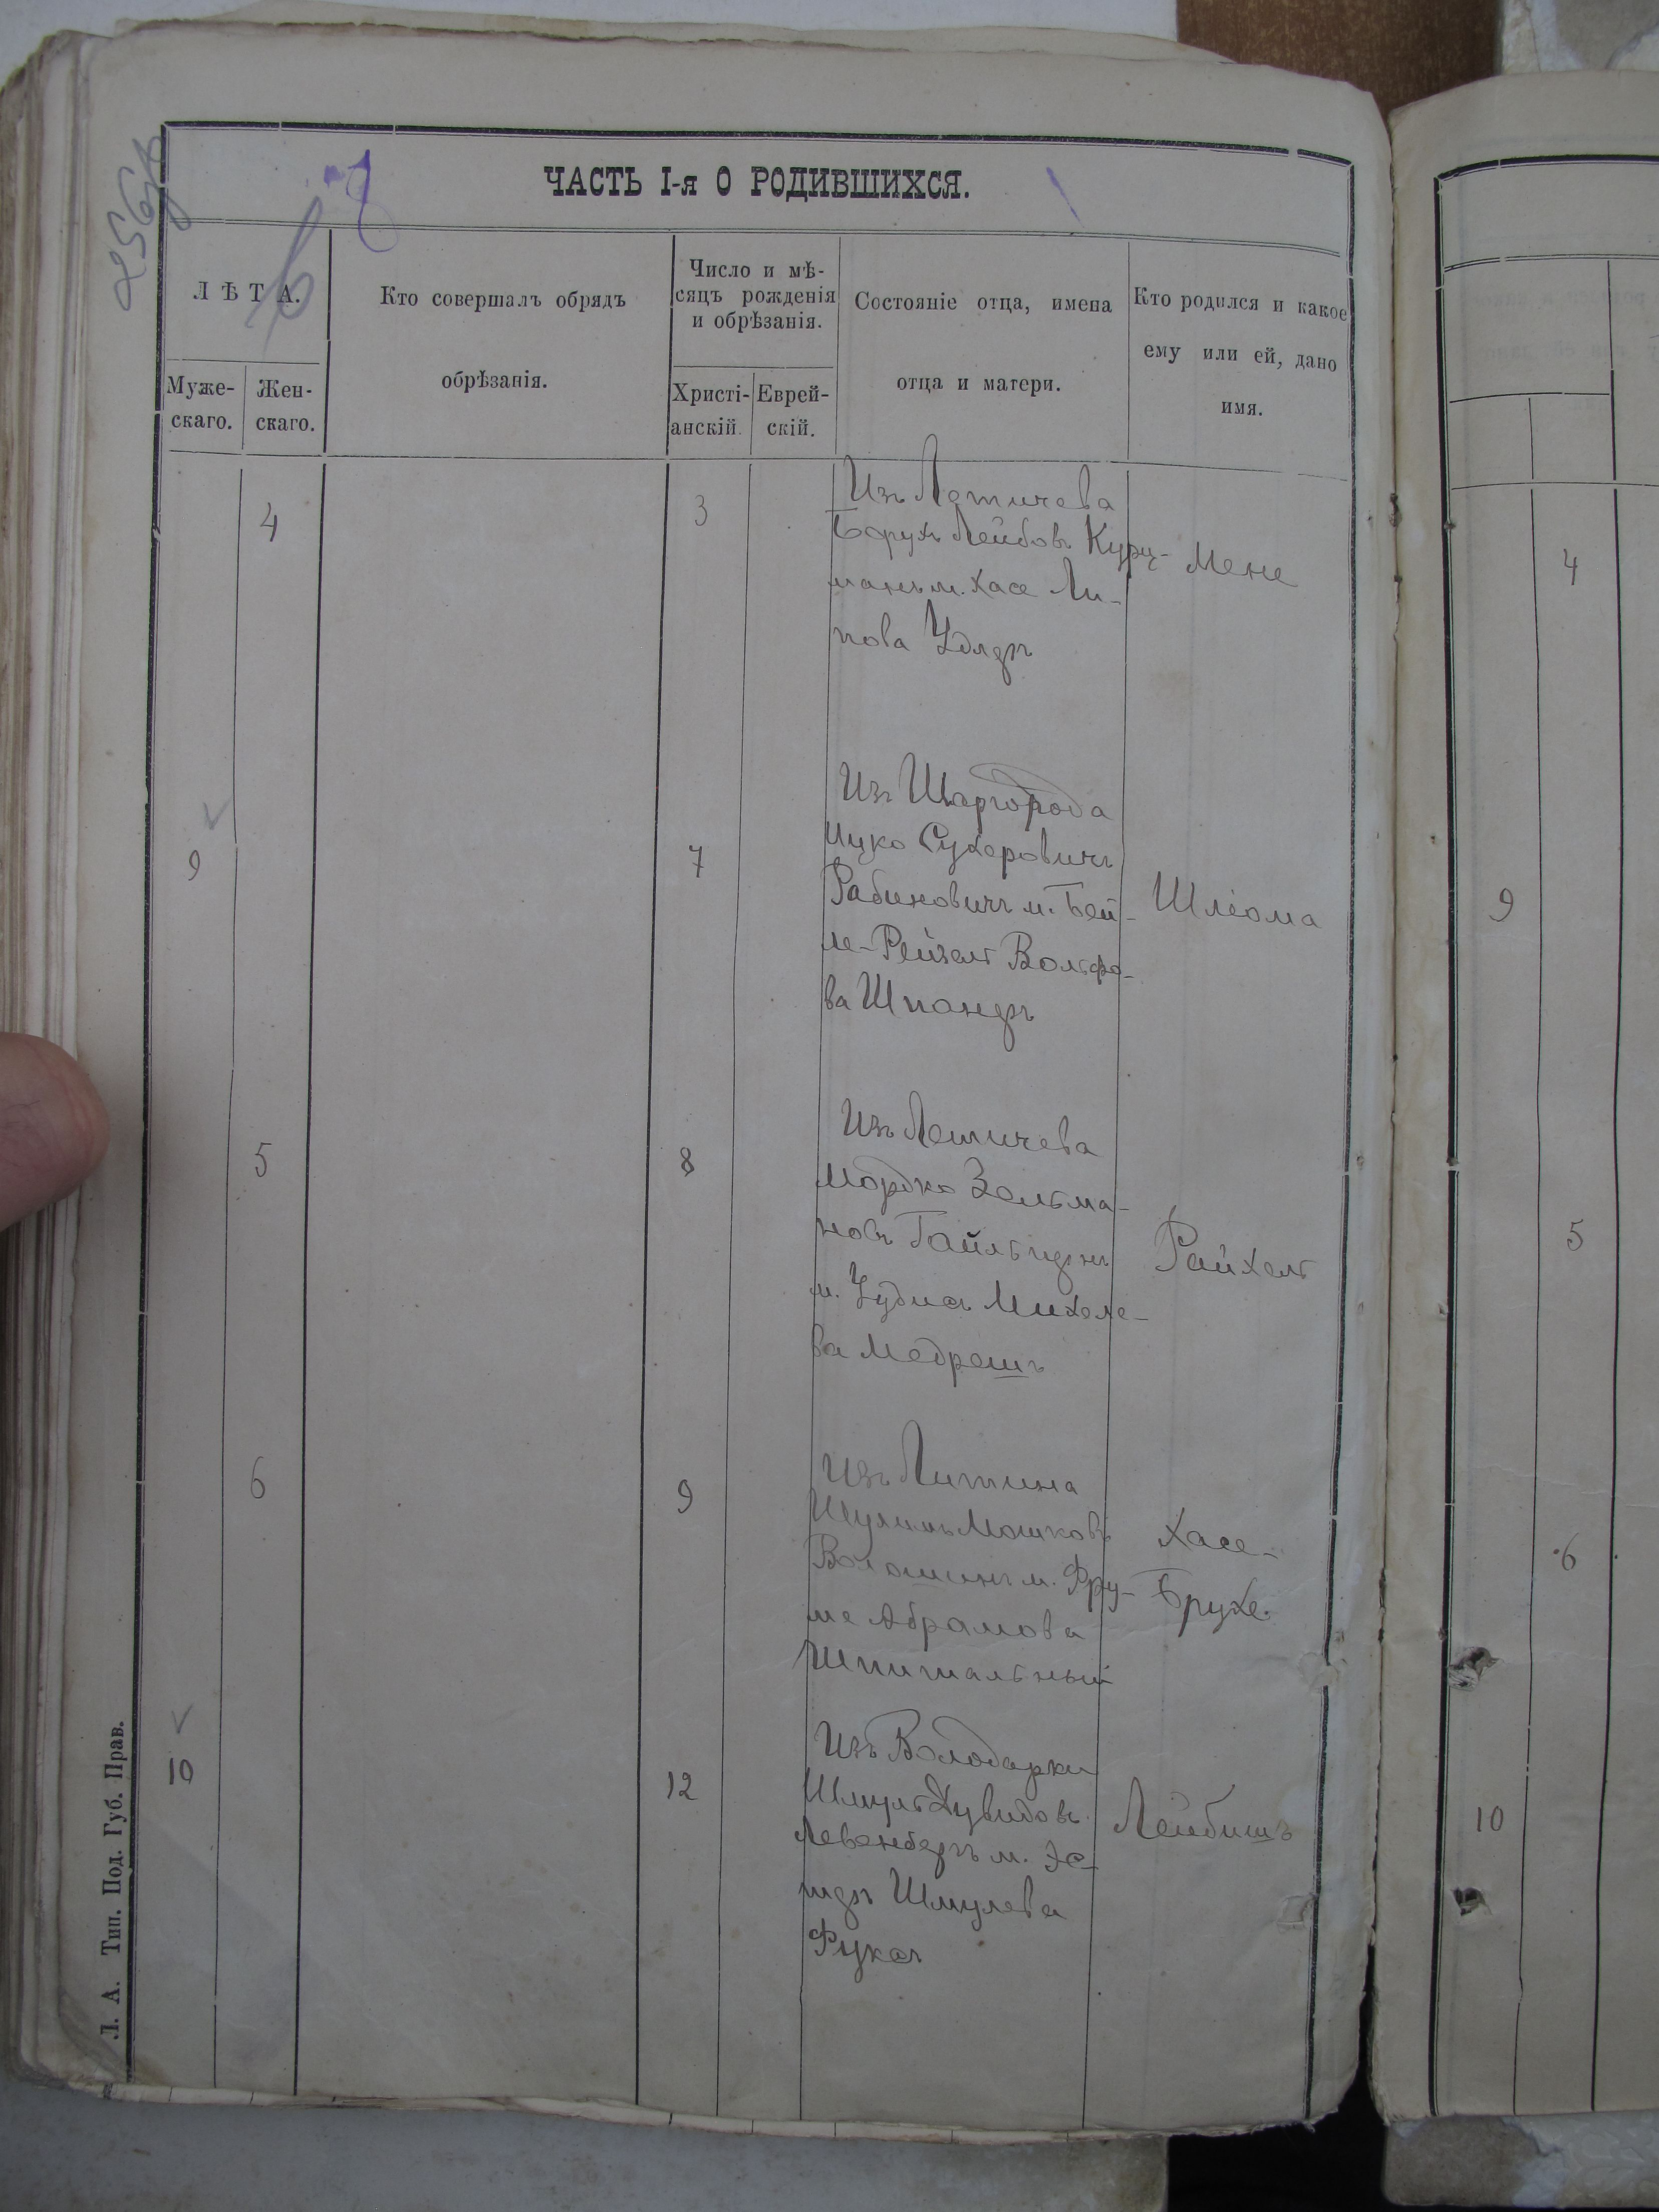 256
ЧАСТЬ I-я О РОДИВШИХСЯ.
ЛѢТА.
Муже-
скаго.
Жен-
скаго.
Кто совершалъ обрядъ
обрѣзанія.
Число и мѣ-
сяцъ рожденія
и обрѣзанія.
Христі-
анскій.
Еврей-
скій.
Состояніе отца, имена
отца и матери.
Кто родился и какое
ему или ей, дано
имя.
4
3
Изъ Летичева
Борухъ Лейбовъ Курц-
манъ м. Хасе Ли-
пова
Мене
9
7
Изъ Шаргорода
Ицко Сухеровичъ
Рабиновичъ м. Бей-
ле-Рейзель Вольфо-
ва
Шлёма
5
8
Изъ Летичева
Мордко Зельма-
новъ
м. Михеле-
ва Медрешъ
Райхель
6
9
Изъ Литина
Шулимъ Мошковъ
Волошинъ м. Фру-
ме Абрамова
Шпитальный
Хасе-
Брухе.
10
12
Изъ Володарки
Шмуль Дувидовъ
Левенбергъ м. Эс-
теръ Шмулева
Фуксъ
Лейбишъ
Л. А. Тип. Под. Губ. Прав.
4
9
5
6
10